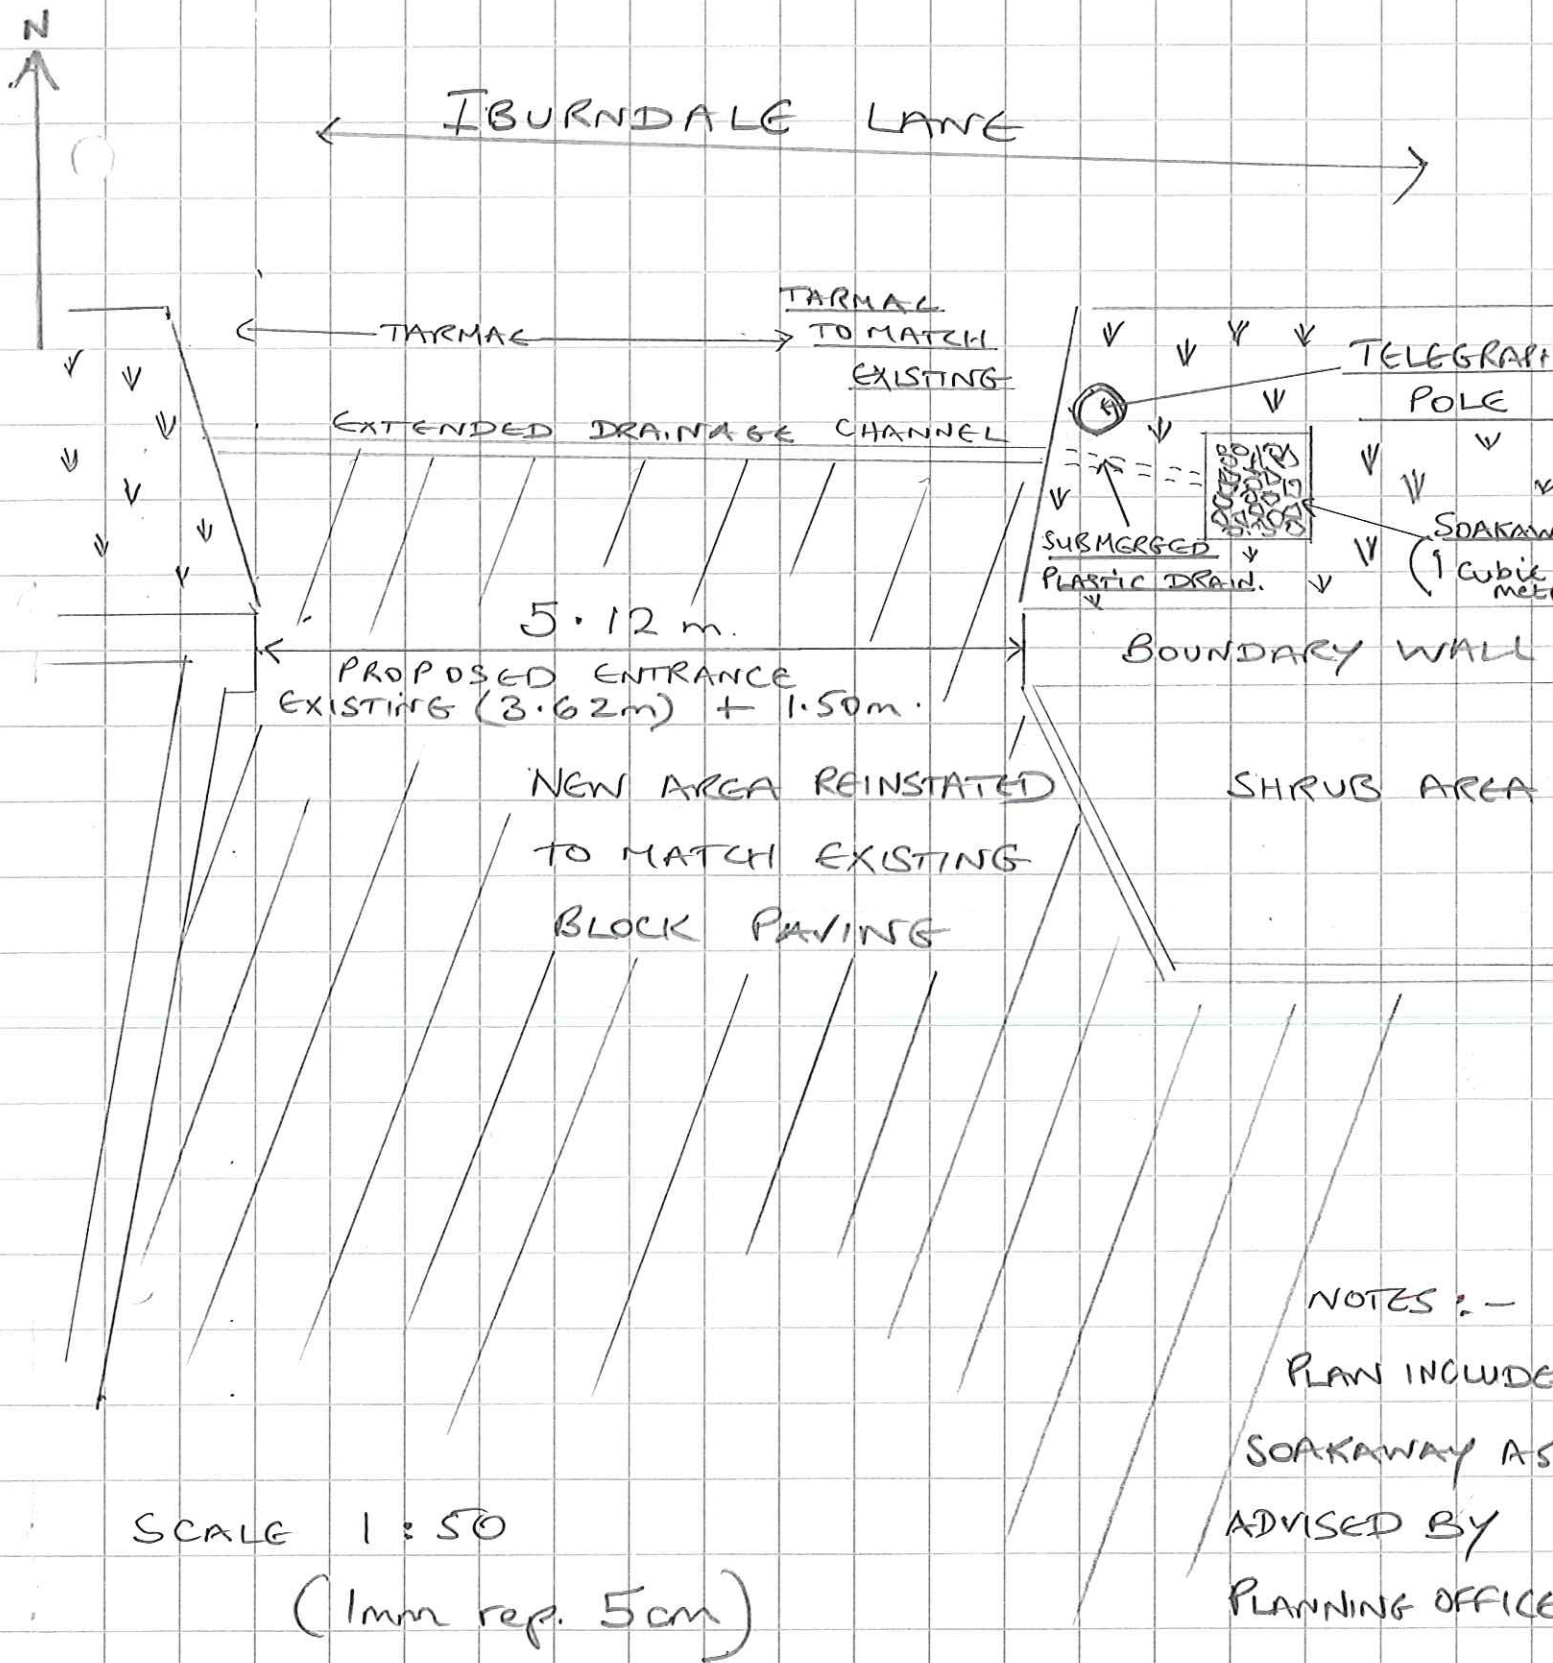 N
IBURNDALE LANE
TARMAC
TARMAC
TO MATCH
EXISTING
TELEGRAPH
POLE
EXTENDED DRAINAGE CHANNEL
SUBMERGED
PLASTIC DRAIN.
SOAKAW
(1 Cubic
met
5.12 m.
PROPOSED ENTRANCE
EXISTING (3.62m) + 1.50m.
BOUNDARY WALL
NEW AREA REINSTATED
TO MATCH EXISTING
BLOCK PAVING
SHRUB AREA
NOTES :-
PLAN INCLUDE
SOAKAWAY AS
ADVISED BY
PLANNING OFFICE
SCALE 1:50
(1mm rep. 5cm)